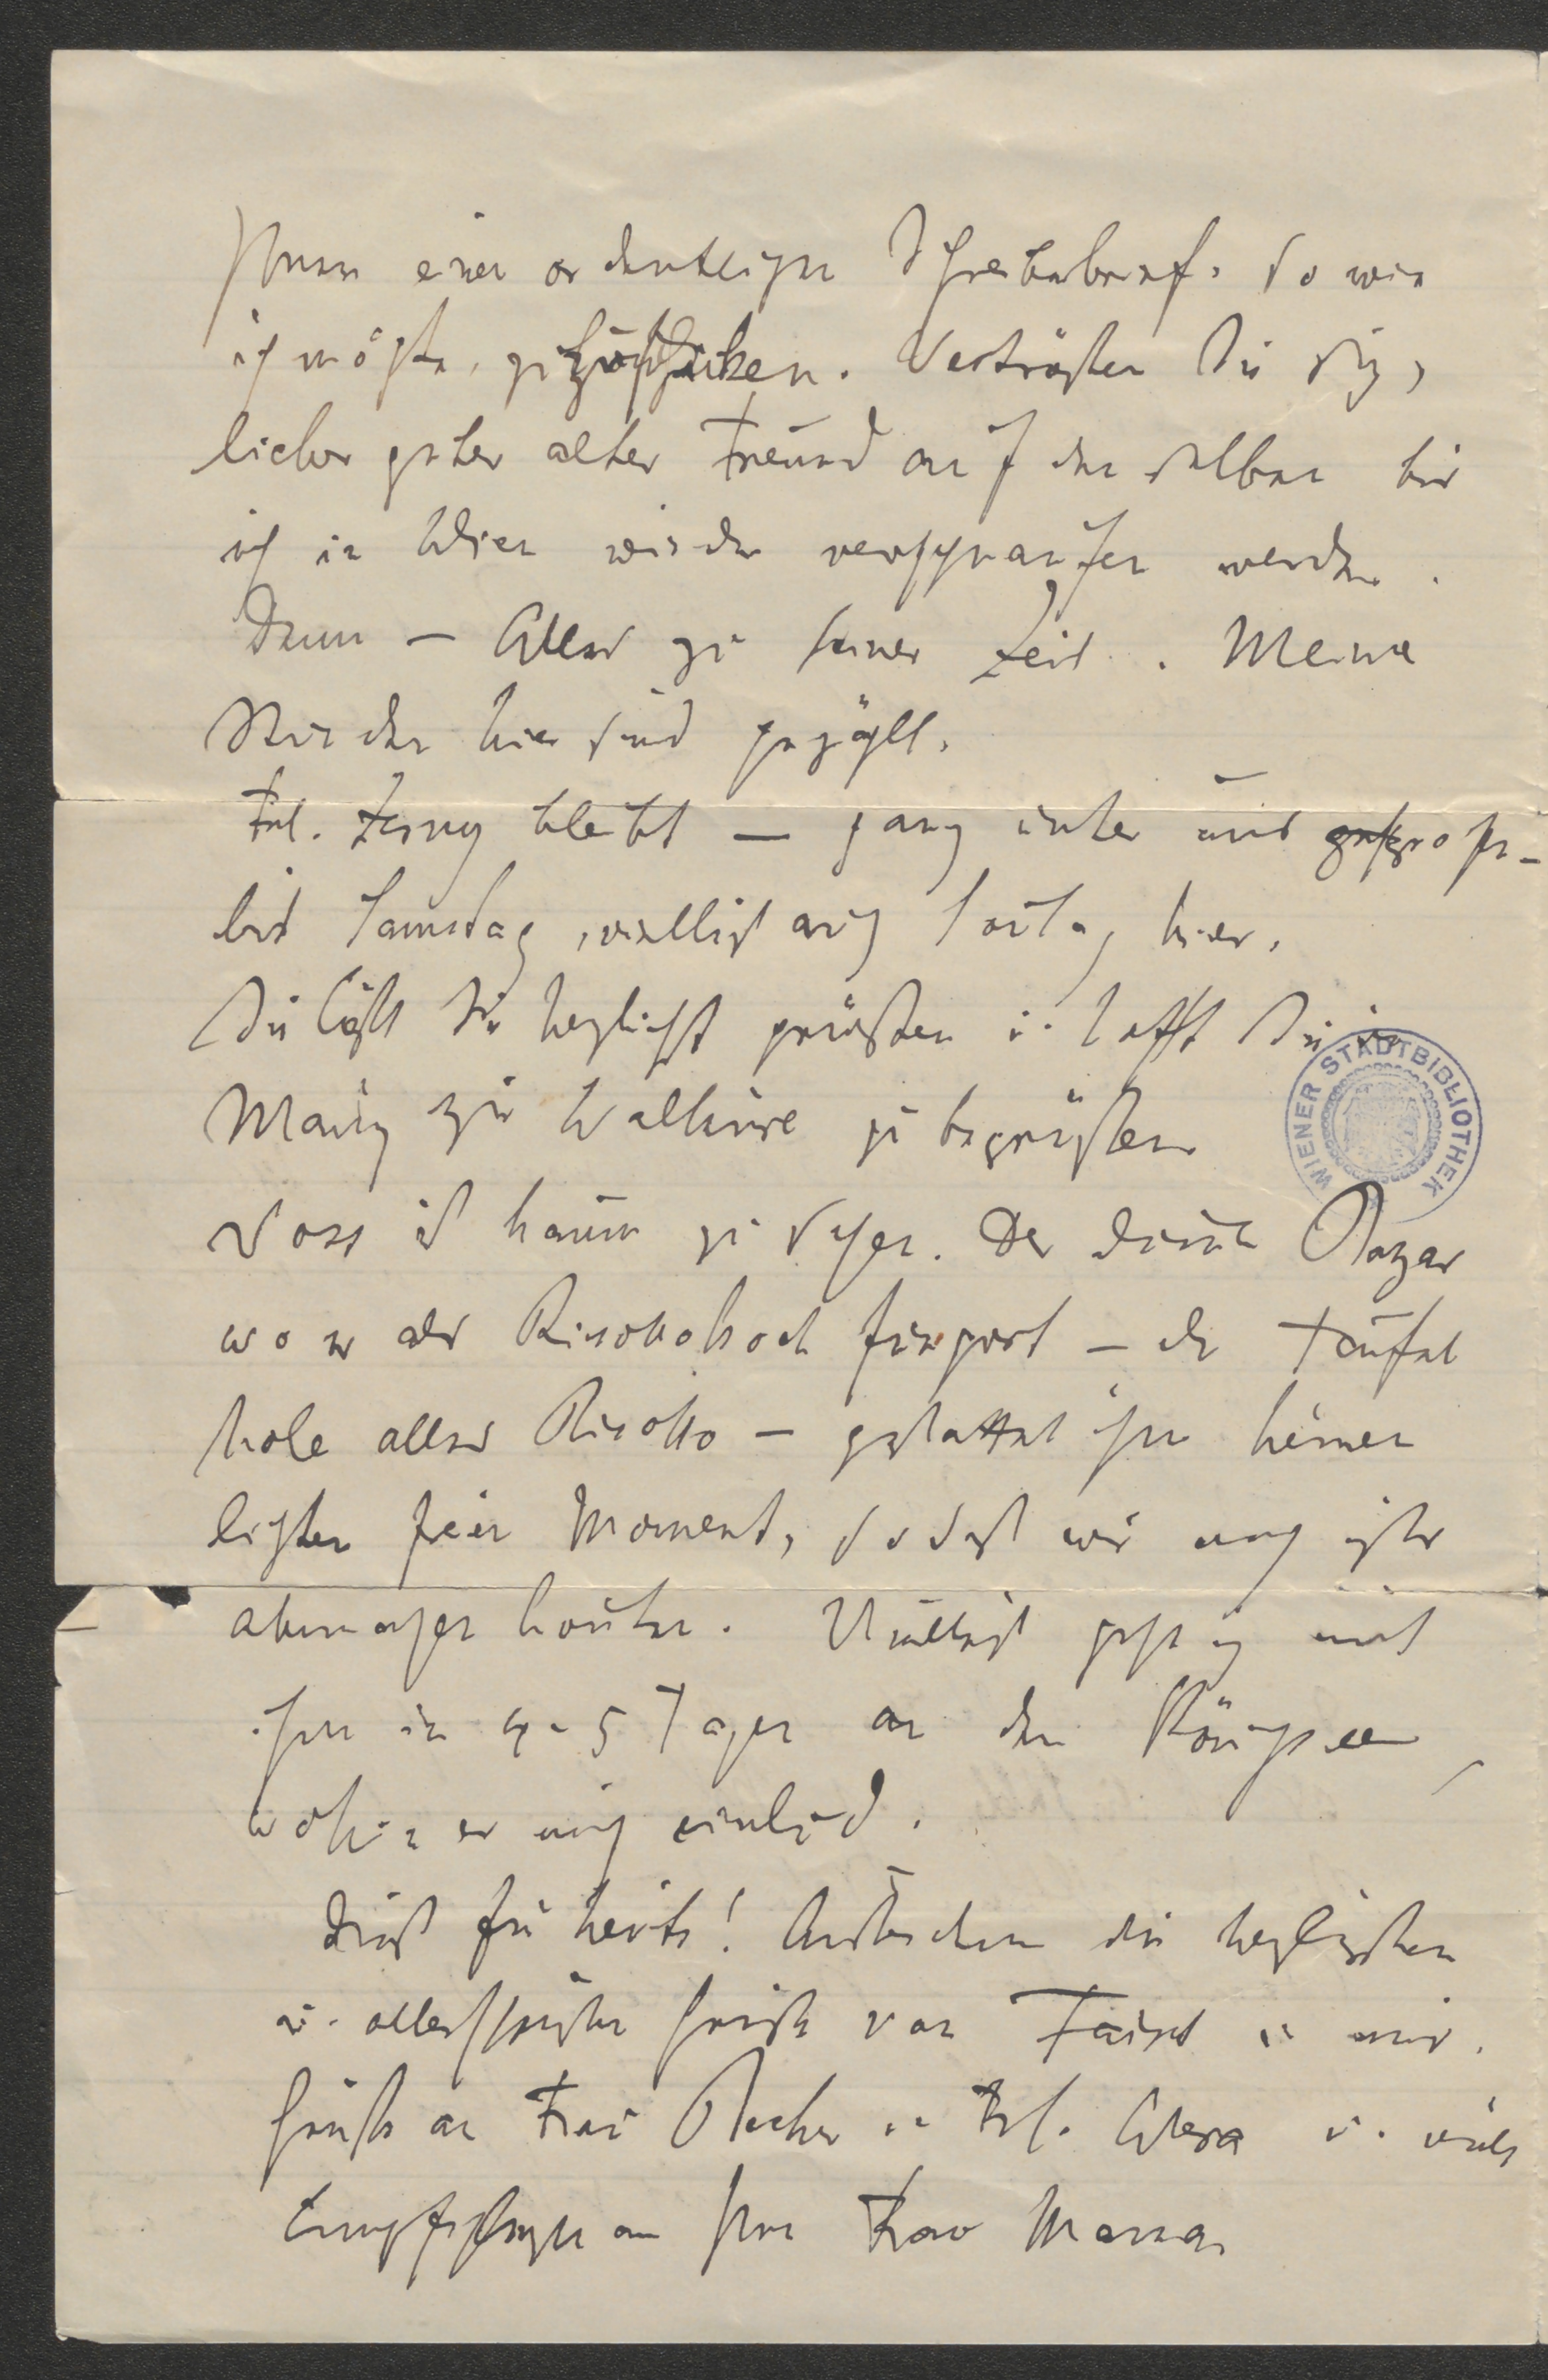 Ihnen einen ordentlichen Schreibebrief, so wie
ich möchte, zu schicken. Vertrösten Sie sich,
lieber guter alter Freund auf denselben bis
ich in Wien wieder verschnaufen werde.
Denn – Alles zu seiner Zeit. Meine
Stunden hier sind gezählt.
Frl. Zerny bleibt – ganz unter uns gesprochen –
bis Samstag, vielleicht auch Sontag hier.
Sie läßt Sie herzlichst grüßen u. hofft Sie in
Mainz zur Walküre zu begrüßen
Voss ist kaum zu sehen. Der dumme Bazar
wo er als Risottokoch fungirt – der Teufel
hole alles Risotto – gestattet ihm keinen
lichten freien Moment, sodaß wir noch nichts
abmachen konten. Vielleicht gehe ich mit
ihm in 4–5 Tagen an den Königssee,
wohin er mich einlud.
Dieß für heute! Unterdeßen die herzlichsten
u. allerschönsten Grüße von Faisst u mir.
Grüße an Frau Recher u Frl. Clara u. viele
Empfehlungen an Ihre Frau Mama
WIENER STADTBIBLIOTHEK